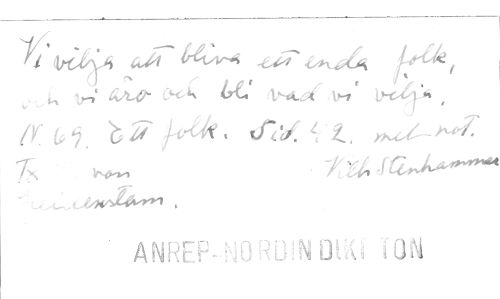 Vi vilja att bliva ett enda folk,
och vi äro och bli vad vi vilja.
N. 69. Ett folk. Sid. 42. mel. not.
Tx von Vilh Stenhammar
Heidenstam.
ANREP-NORDIN DIKT TON